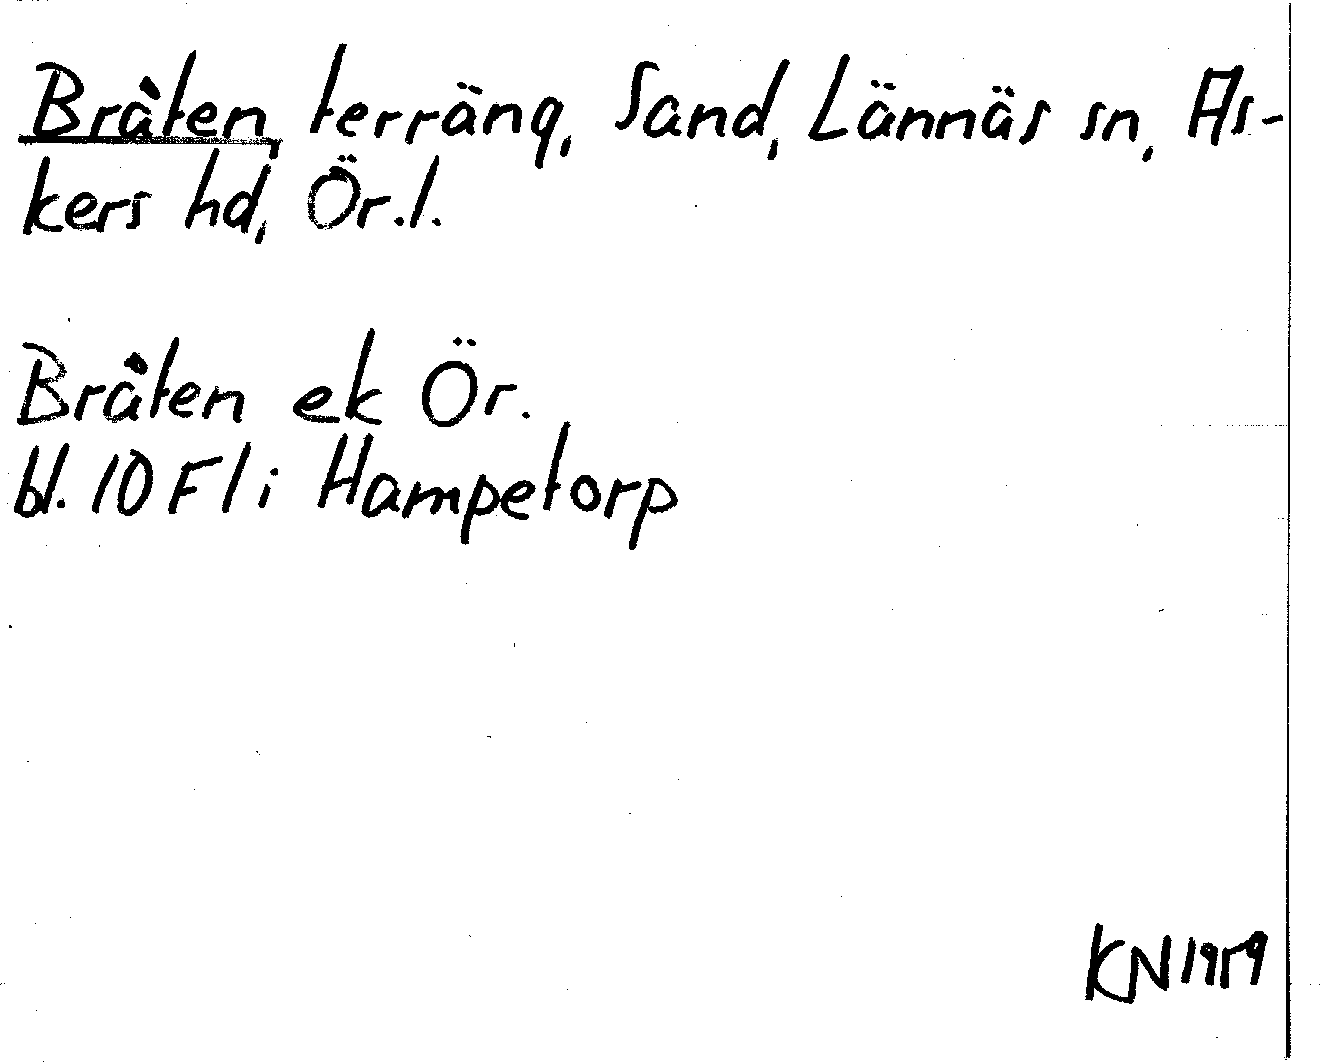 Bråten, terräng, Sand, Lännäs sn, As-
kers hd, Ör.l.
Bråten ek Ör.
bl. 10 F 1 i Hampetorp
KN 1959